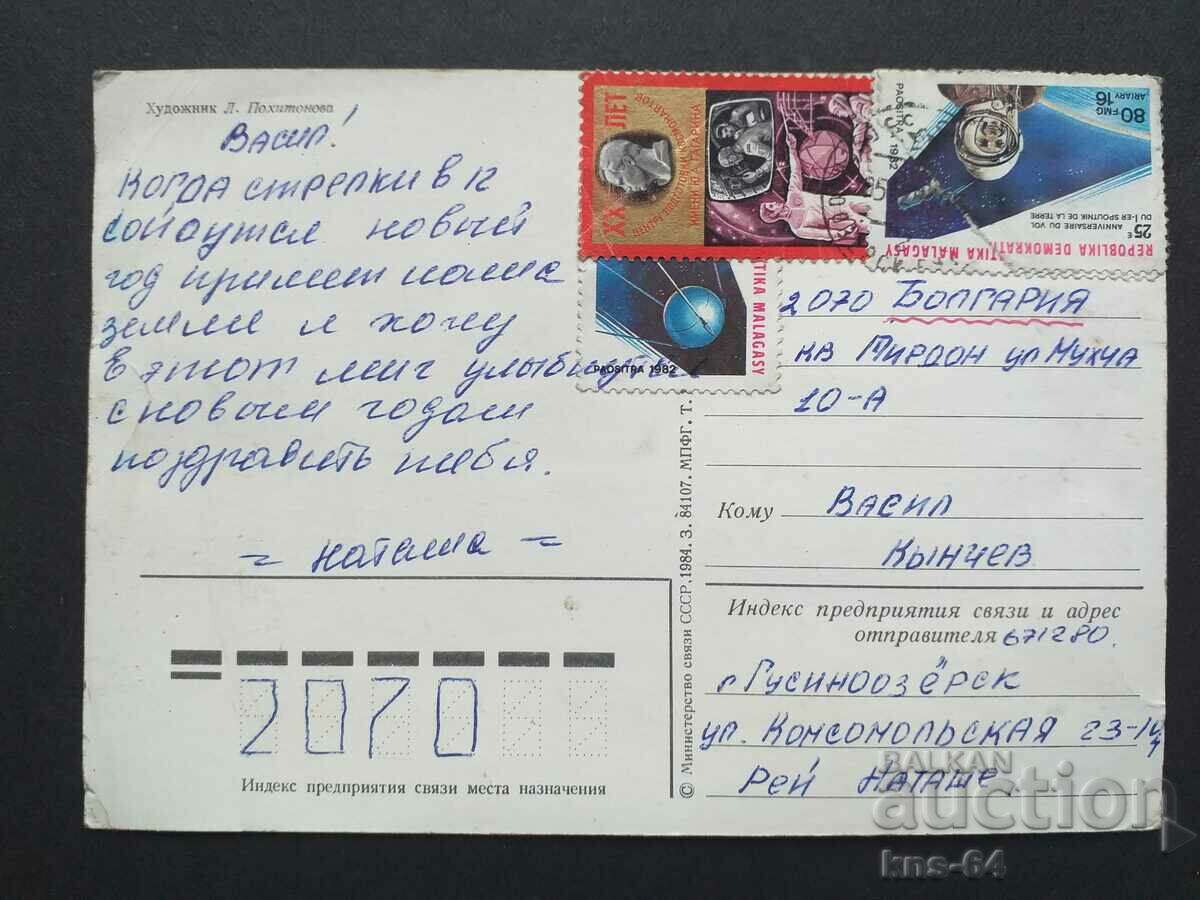 Художник Л. Похитонова
Васил!
Когда стрелки в 12
сойдутся новый
год примет
земле я хочу
в этот миг улыбнуться
с новым годом
поздравить тебя.
= Наташа =
XX ЛЕТ
ЦЕНТРУ ПОДГОТОВКИ КОСМОНАВТОВ
ИМЕНИ Ю.А. ГАГАРИНА
80 FMG
16 ARIARY
PAOSITRA 1982
25E ANNIVERSAIRE DU VOL
DU 1-ER SPOUTNIK DE LA TERRE
REPOBLIKA DEMOKRATIKA MALAGASY
TIKA MALAGASY
PAOSITRA 1982
2070 БОЛГАРИЯ
кв Пирдоп ул Мухча
10-А
Кому Васил
Кынчев
Индекс предприятия связи и адрес
отправителя 671280.
г Гусиноозёрск
ул. Комсомольская 23-14
Рей Наташе.
2070
Индекс предприятия связи места назначения
© Министерство связи СССР, 1984. З. 84107. МПФГ. Т.
BALKAN
auction
kns-64